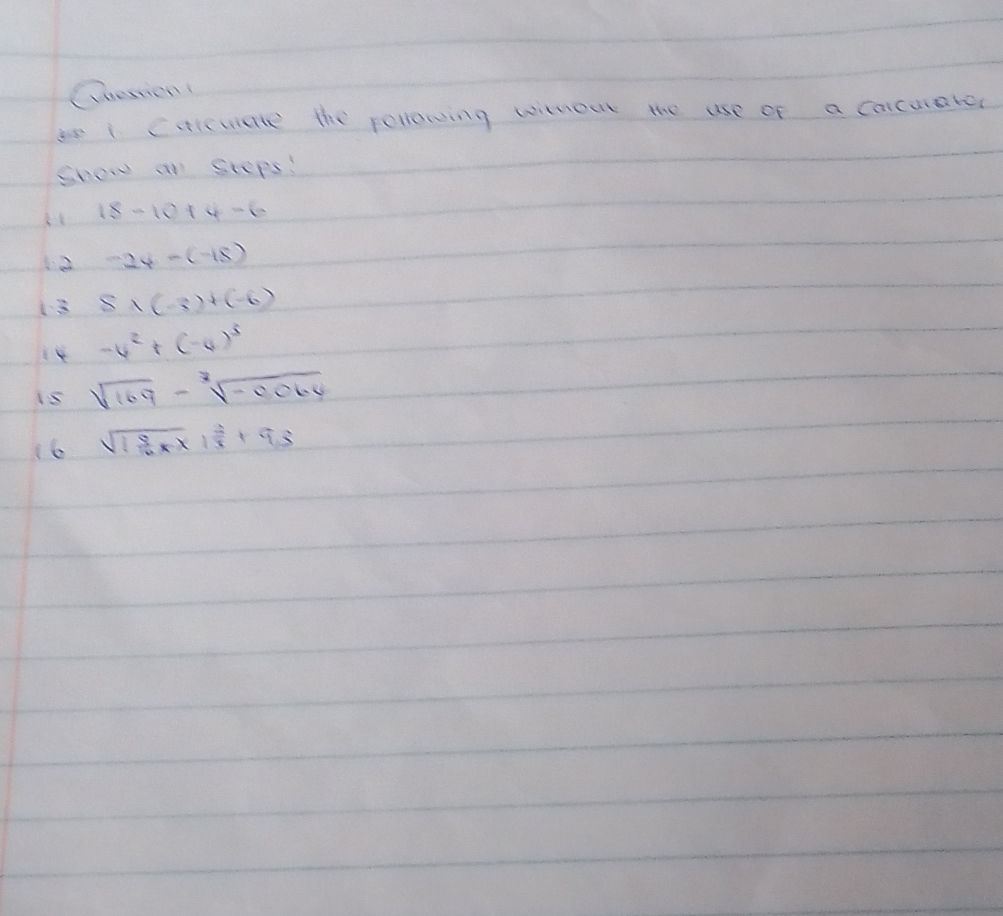 Question 1
1 Calculate the following without the use of a calculator
Show all steps!
1.1 18 - 10 + 4 - 6
1.2 -24 - (-18)
1.3 5 × (-3) + (-6)
1.4 -4² + (-4)³
1.5 √169 - ³√-0.064
1.6